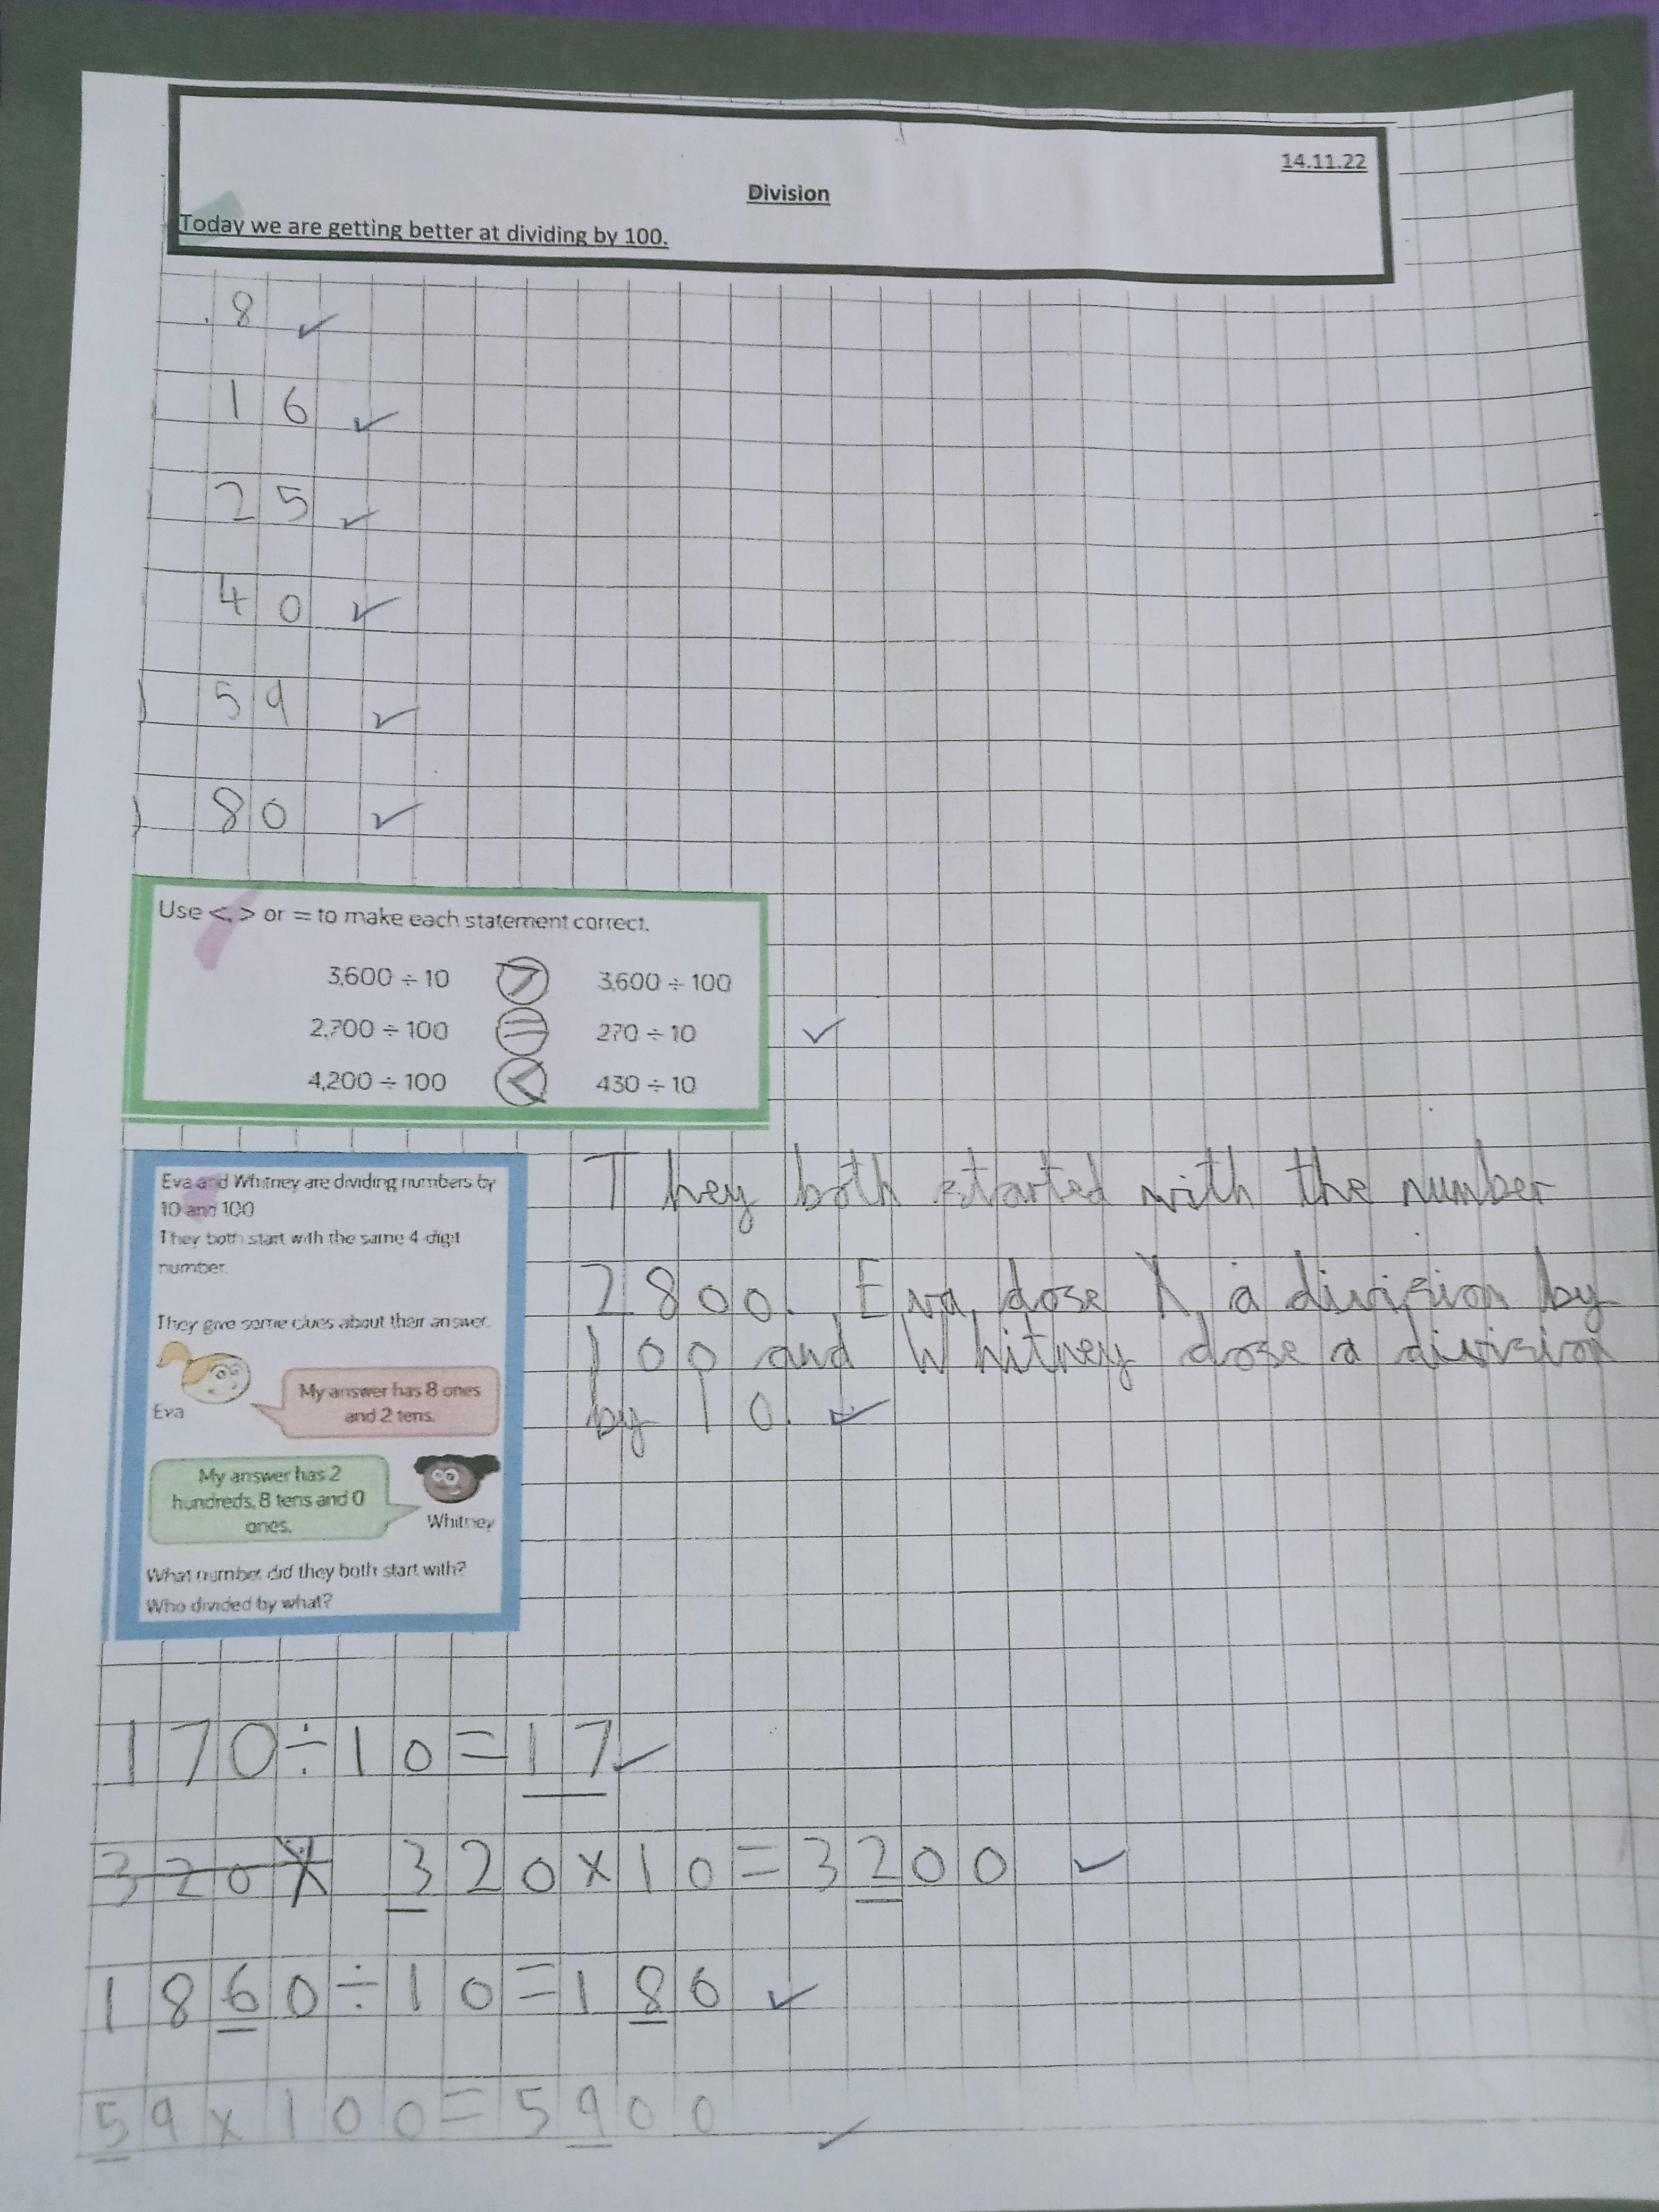 14.11.22
Division
Today we are getting better at dividing by 100.
8 ✓
16 ✓
25 ✓
40 ✓
) 59 ✓
) 80 ✓
Use <, > or = to make each statement correct.
3,600 ÷ 10 > 3,600 ÷ 100
2,700 ÷ 100 = 270 ÷ 10 ✓
4,200 ÷ 100 < 430 ÷ 10
Eva and Whitney are dividing numbers by
10 and 100
They both start with the same 4-digit
number.
They give some clues about their answer.
My answer has 8 ones
and 2 tens.
Eva
My answer has 2
hundreds, 8 tens and 0
ones.
Whitney
What number did they both start with?
Who divided by what?
They both started with the number
2800. Eva dose X a division by
100 and Whitney dose a division
by 10. ✓
170÷10=17 ✓
320X 320x10=3200 ✓
1860÷10=186 ✓
59x100=5900 ✓